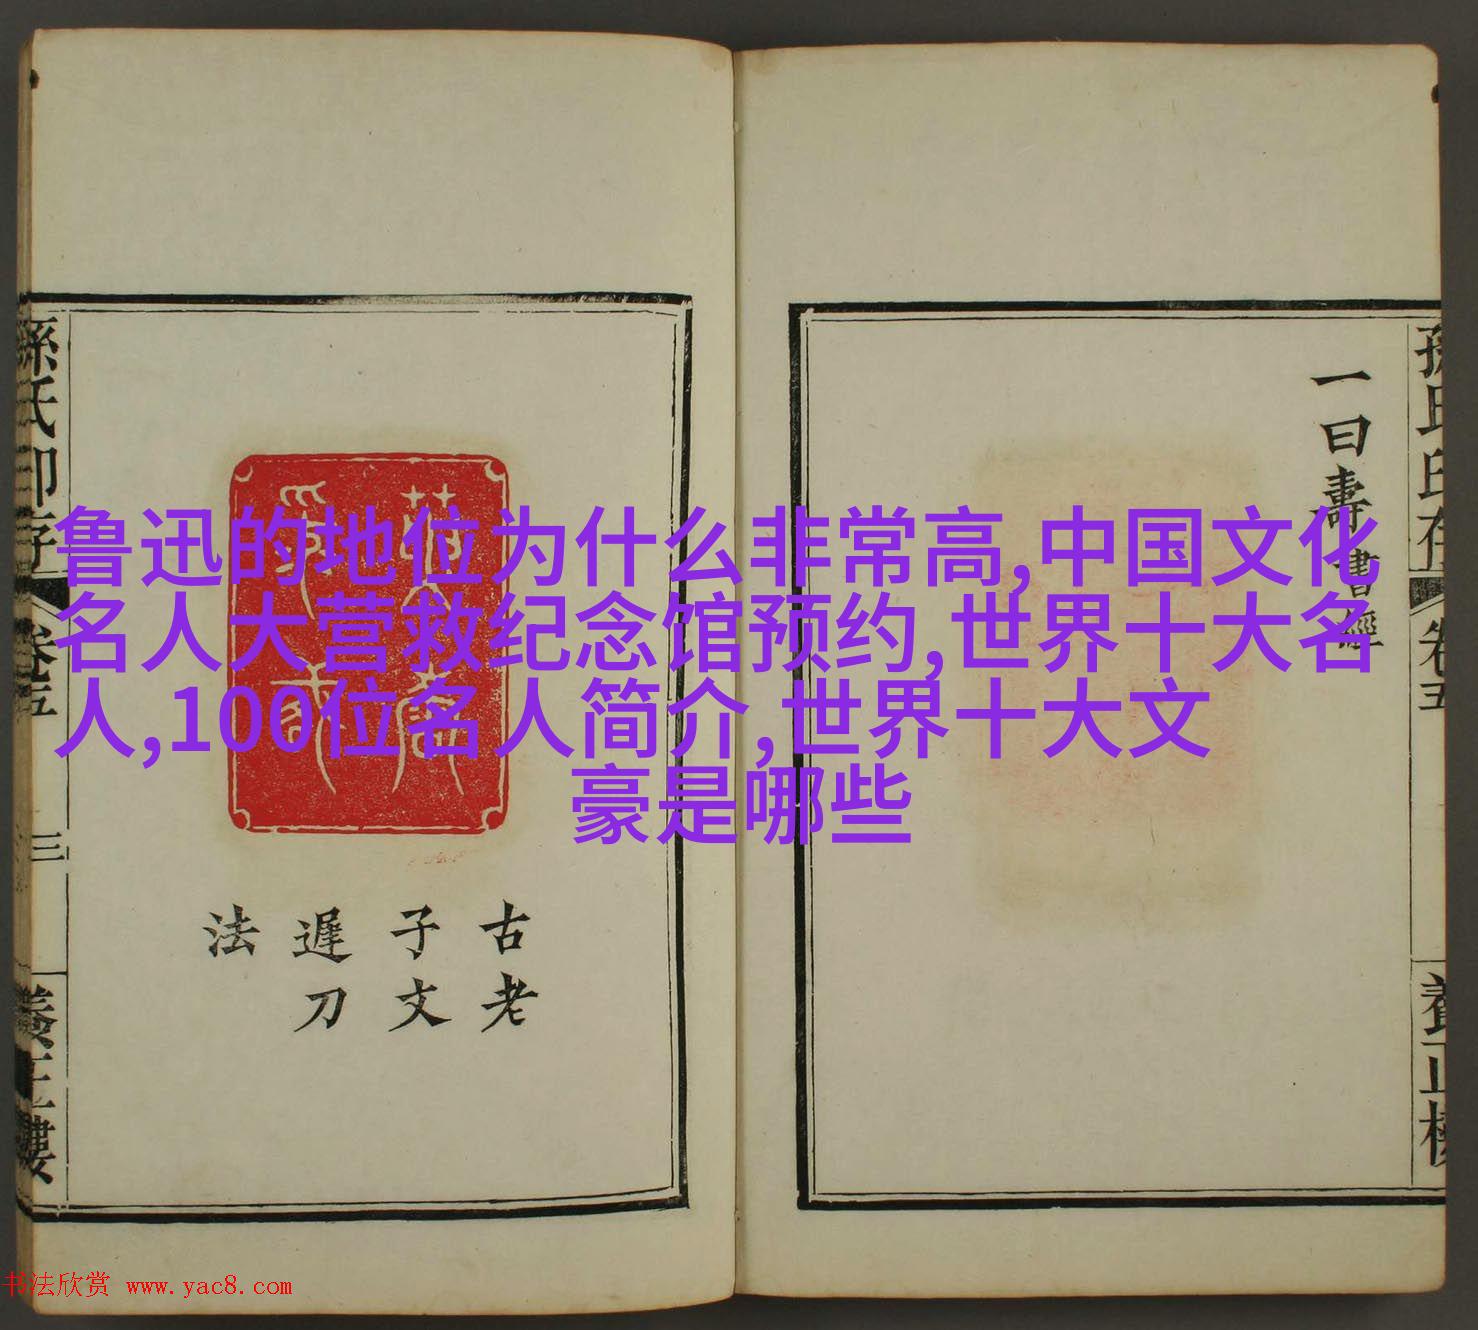 鲁迅的地位为什么非常高,中国文化
名人大营救纪念馆预约,世界十大名
人,100位名人简介,世界十大文
豪是哪些
一曰壽書經
孫氏印存
卷五
養正樓
古老
子文
遲刀
法
孫氏印存
卷五
三
養正樓
书法欣赏 www.yac8.com